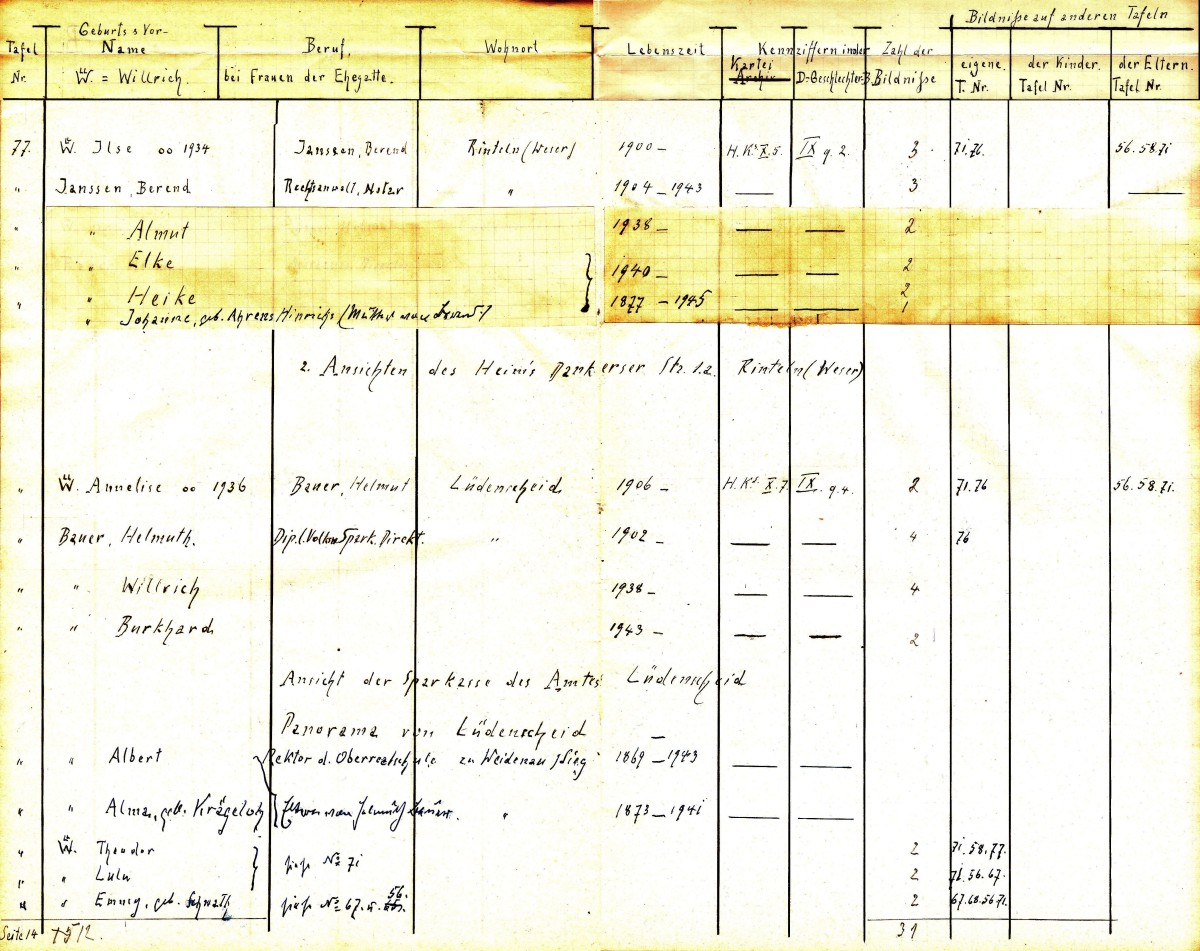 Bildniße auf anderen Tafeln
Tafel Nr. Geburts & Vor- Name W. = Willrich. Beruf, bei Frauen der Ehegatte. Wohnort Lebenszeit Kennziffern in der Kartei Archiv D=Geschlechter-B. Zahl der Bildniße eigene. T. Nr. der Kinder. Tafel Nr. der Eltern. Tafel Nr.
77. W. Ilse oo 1934 Janssen, Berend Rinteln (Weser) 1900 – H.K. X.5. IX g. 2. 3 71.76. 56.58.71
" Janssen, Berend Rechtsanwalt, Notar " 1904 – 1943 — 3 —
" " Almut 1938 – — — 2
" " Elke 1940 – — — 2
" " Heike 2
" " Johanne, geb. Ahrens Hinrichs (Mutter von Berend) 1877 – 1945 — — 1
2. Ansichten des Heims Dankerser Str. 1.a. Rinteln (Weser)
" W. Annelise oo 1936 Bauer, Helmut Lüdenscheid 1906 – H.K. X.7. IX. g. 4. 2 71.76 56.58.71.
" Bauer, Helmuth. Dipl. Volksw. Spark. Direkt. " 1902 – — — 4 76
" " Willrich 1938 – — — 4
" " Burkhard 1943 – — — 2
Ansicht der Sparkasse des Amtes Lüdenscheid
Panorama von Lüdenscheid –
" " Albert Rektor d. Oberrealschule zu Weidenau / Sieg 1869 – 1943 — —
" " Alma, geb. Krägeloh Eltern von Helmuth Bauer. " 1873 – 1941 — —
" W. Theodor siehe No 71 2 71.58.77.
" " Lulu 2 71.56.67.
" " Emmy, geb. Schnath siehe No 67. u. 56. 2 67.68.56.71.
Seite 14 +512. 31